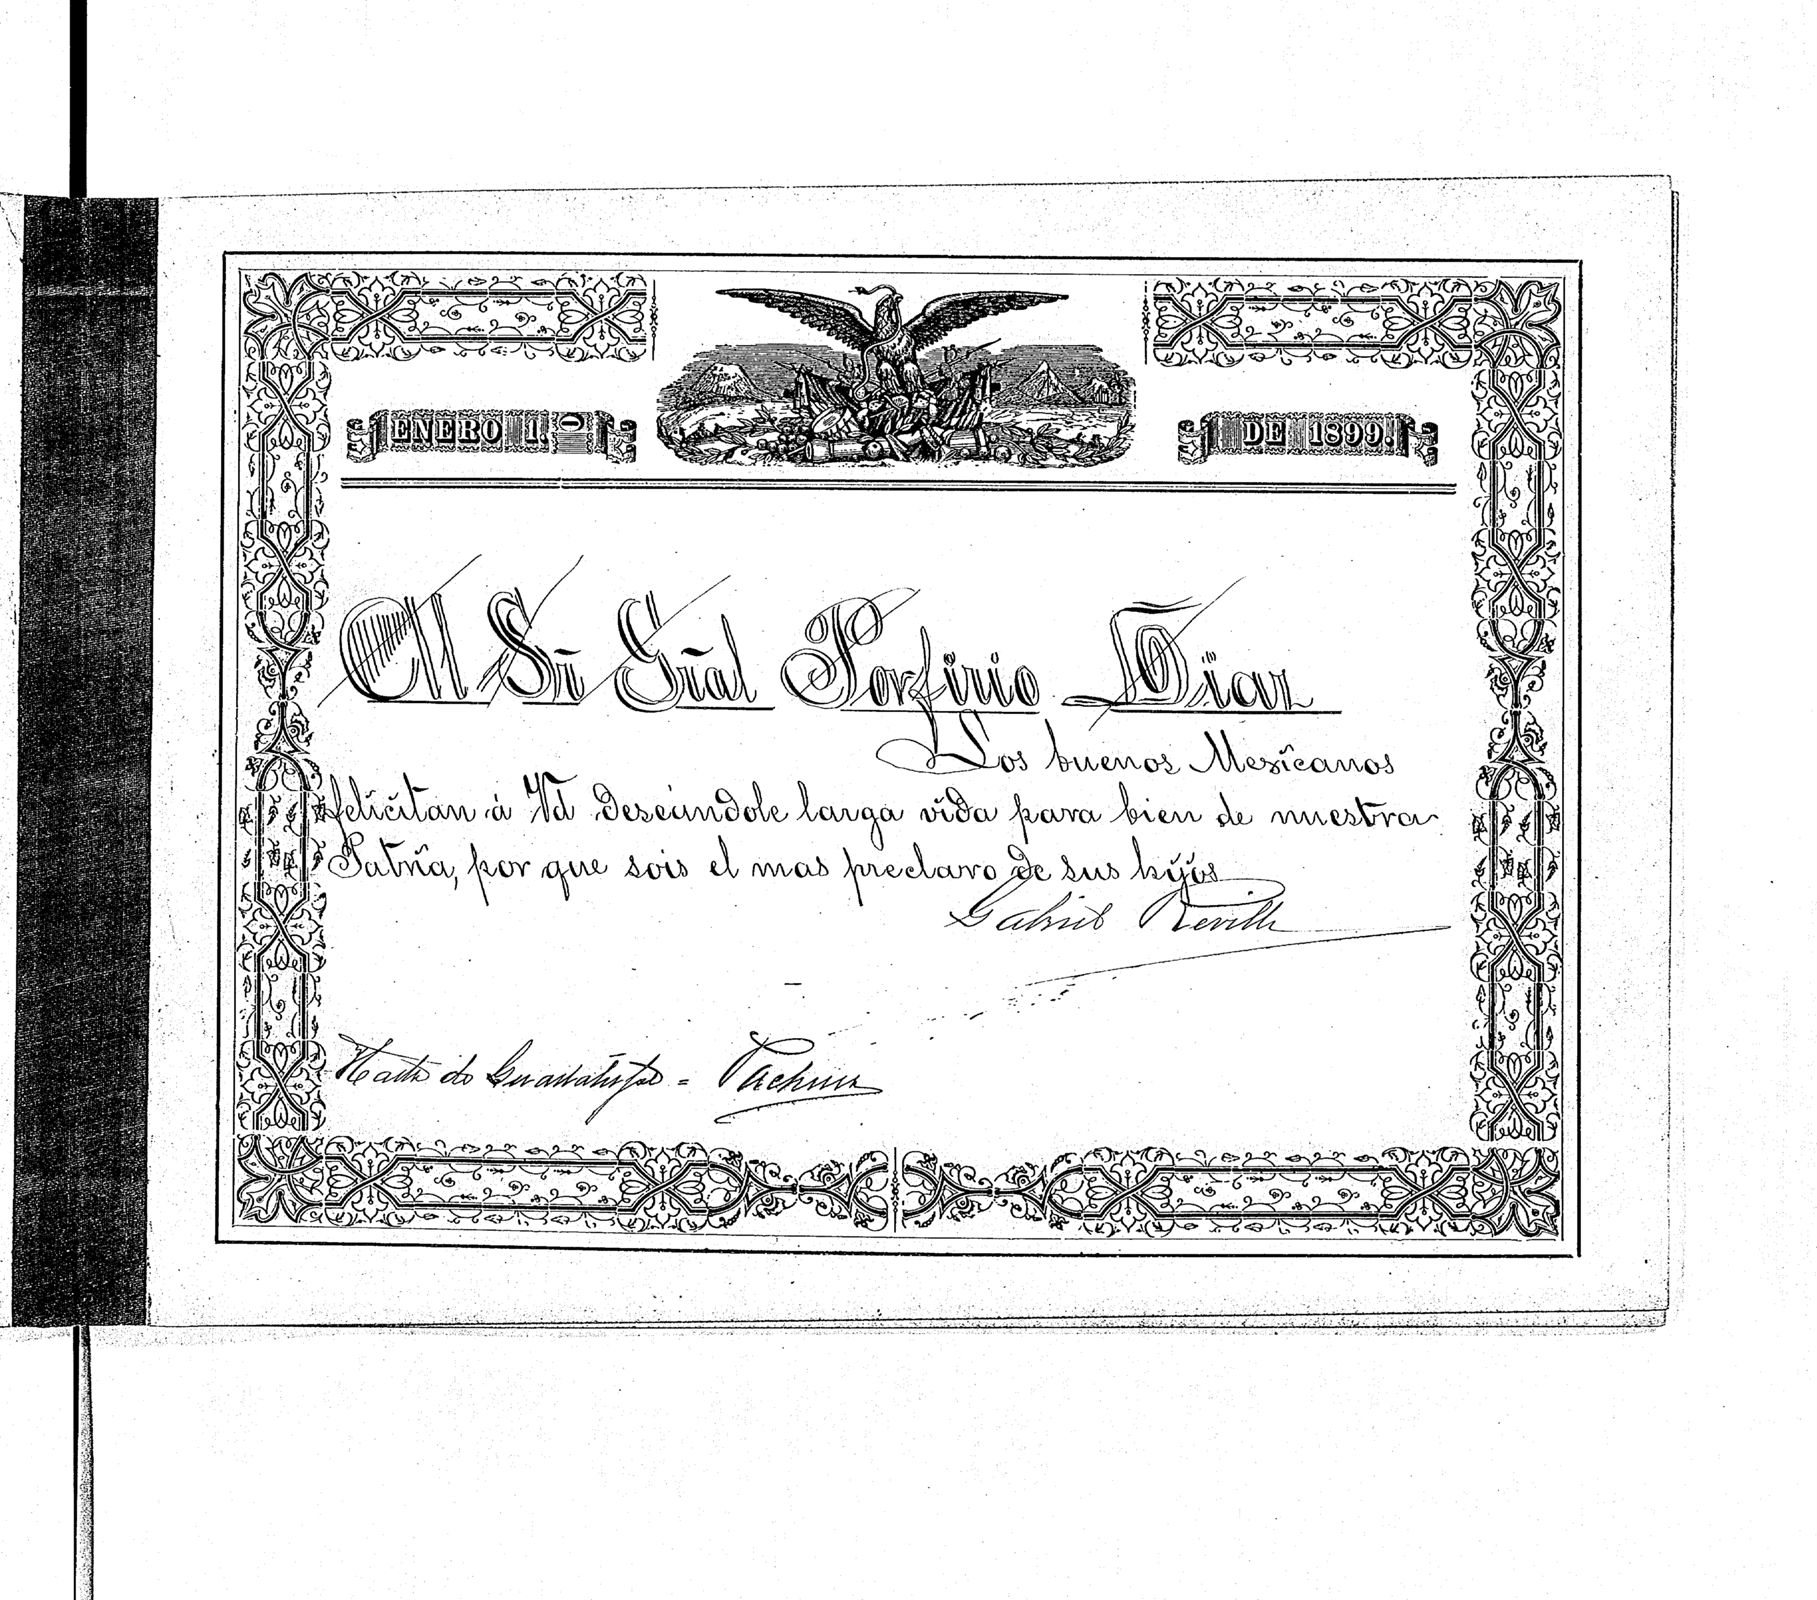 ENERO 1.º DE 1899.
Al Sr Gral Porfirio Díaz
Los buenos Mexicanos
felicitan á Vd deseándole larga vida para bien de nuestra
Patria, por que sois el mas preclaro de sus hijos
Gabriel Revilla
Hacda de Guadalupe = Pachuca